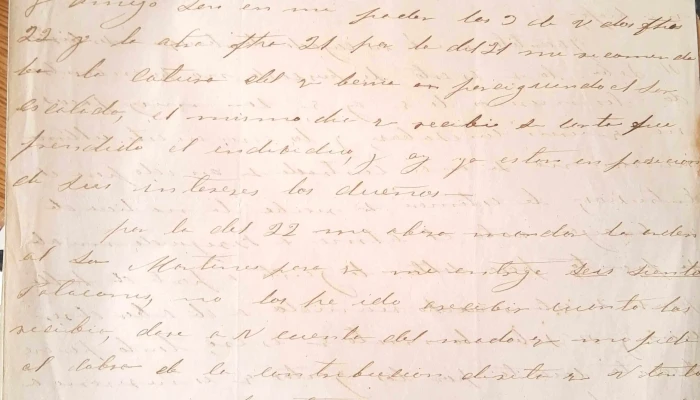 y amigo son en mi poder las 2 de V dos fha
22 y la otra fha 21 por la del 21 me recomenda
ba la catura del q benia en persiguiendo el
el mismo dia q recibi su carta fue
prendido el individuo, y oy ya estan en posecion
de sus intereses los dueños—
por la del 22 me abisa mandar la orden
al Sor Martines para q me entrege seis sientos
Patacones, no los he ido a recibir cuanto los
recibia, dare a V cuenta del modo q me pide
al cobro de la contribucion direta q V